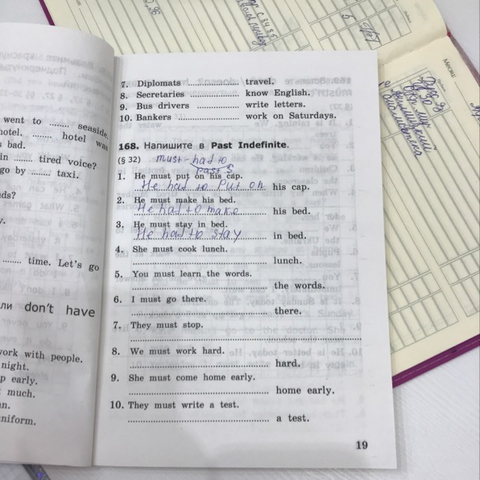 went to ........ seaside.
hotel. ........ hotel was
s bad.
in ........ tired voice?
go by ........ taxi.
ds?
y.
........ time. Let's go
ли don't have
work with people.
night.
p early.
much.
n.
niform.
7. Diplomats ............ travel.
8. Secretaries ............ know English.
9. Bus drivers ............ write letters.
10. Bankers ............ work on Saturdays.
168. Напишите в Past Indefinite.
(§ 32) must - had to
past S
1. He must put on his cap.
He had to Put on his cap.
2. He must make his bed.
He had to make his bed.
3. He must stay in bed.
He had to stay in bed.
4. She must cook lunch.
............ lunch.
5. You must learn the words.
............ the words.
6. I must go there.
............ there.
7. They must stop.
............
8. We must work hard.
............ hard.
9. She must come home early.
............ home early.
10. They must write a test.
............ a test.
19